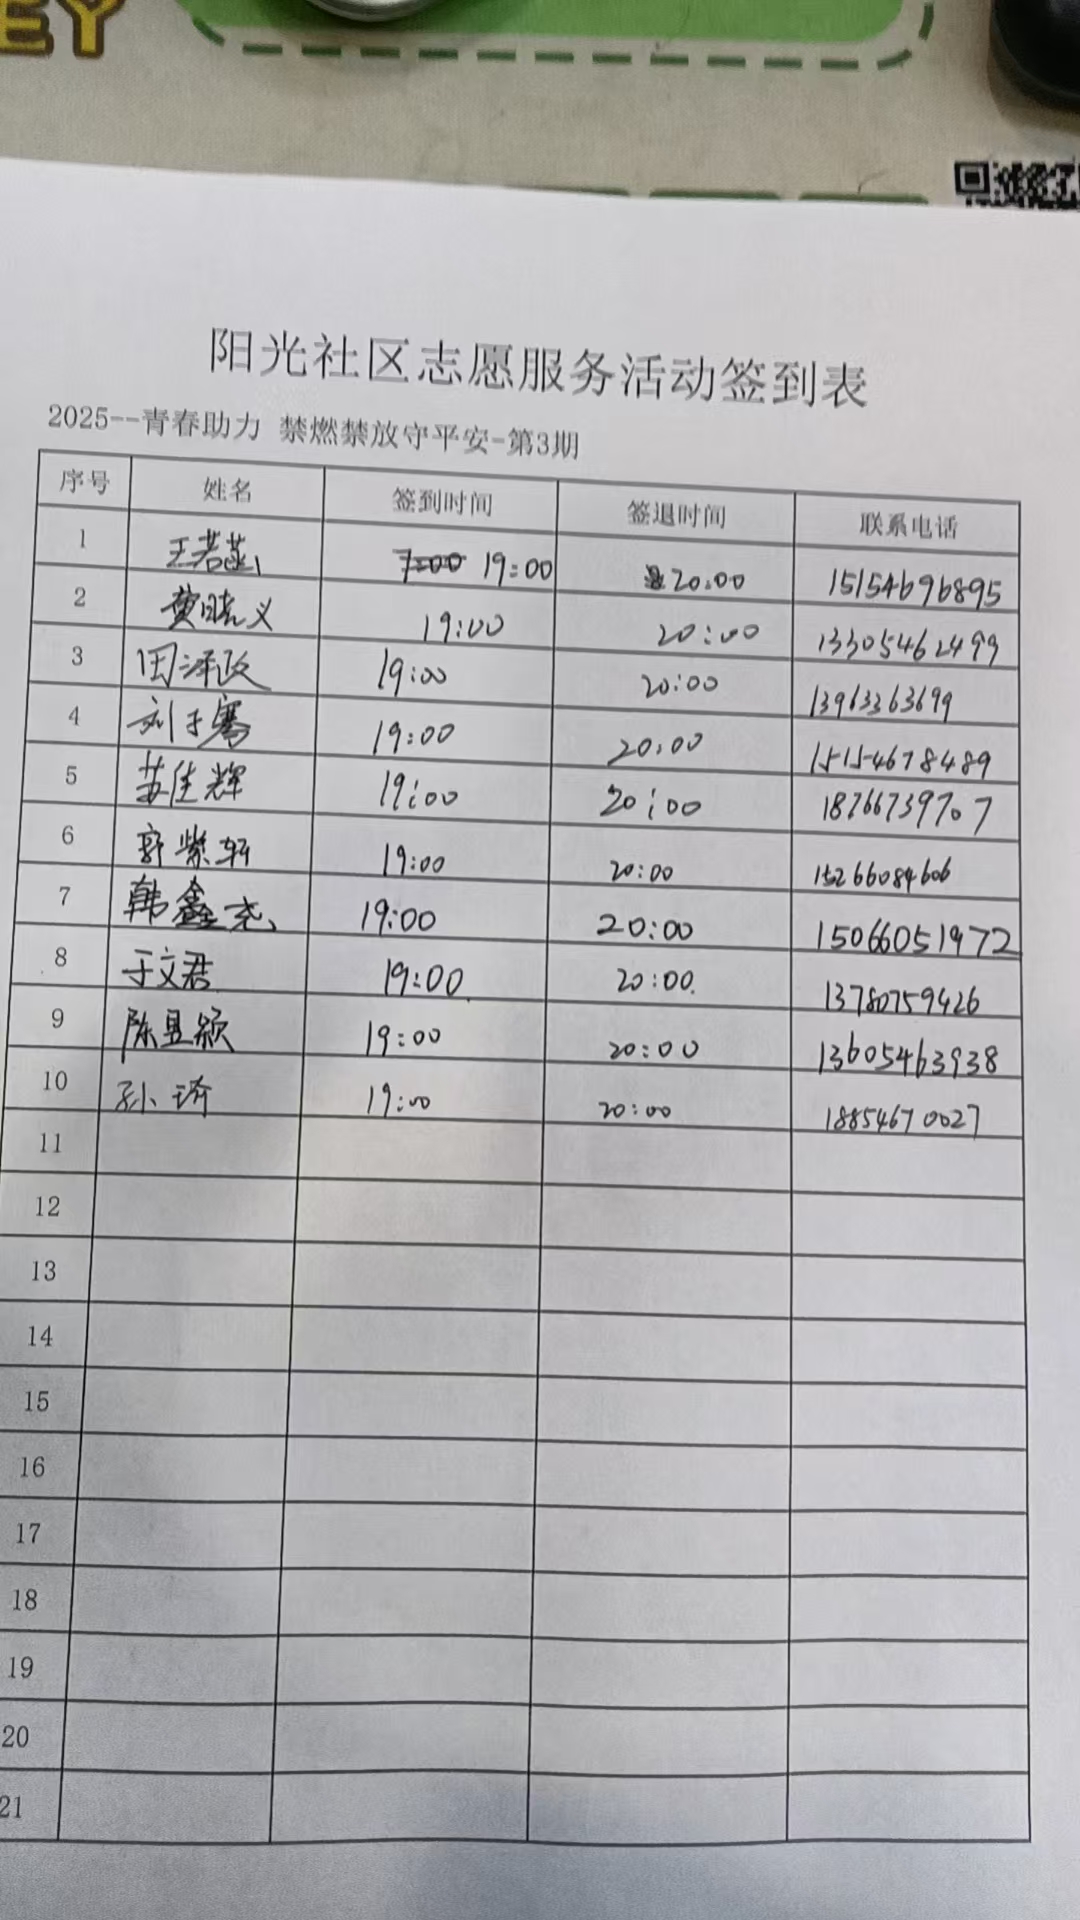 EY
阳光社区志愿服务活动签到表
2025--青春助力 禁燃禁放守平安-第3期
序号 姓名 签到时间 签退时间 联系电话
1 王若菡 7:00 19:00 20:00 15154696895
2 黄晓义 19:00 20:00 13305462499
3 田泽政 19:00 20:00 13963363699
4 刘子骞 19:00 20:00 15154678489
5 苏佳辉 19:00 20:00 18766739707
6 郭紫轩 19:00 20:00 15266084606
7 韩鑫尧 19:00 20:00 15066051972
8 于文君 19:00 20:00 13780759426
9 陈昱颖 19:00 20:00 13605463938
10 孙琦 19:00 20:00 18854670027
11
12
13
14
15
16
17
18
19
20
21